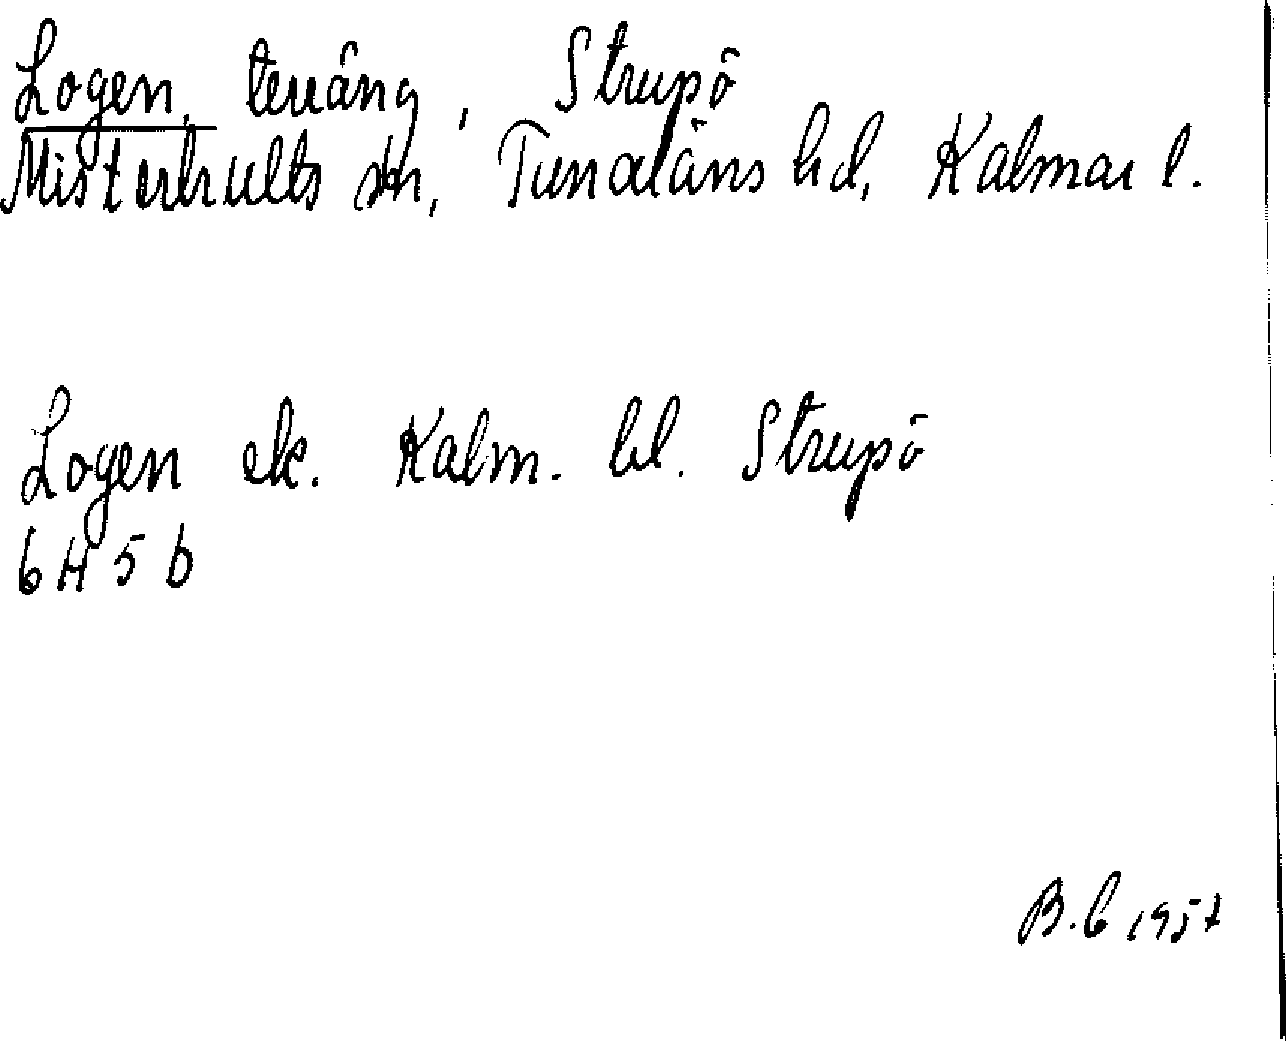 Logen, terräng, Strupö
Misterhults sn, Tunaläns hd, Kalmar l.
Logen ek. Kalm. bl. Strupö
6 H 5 b
B.C 1957